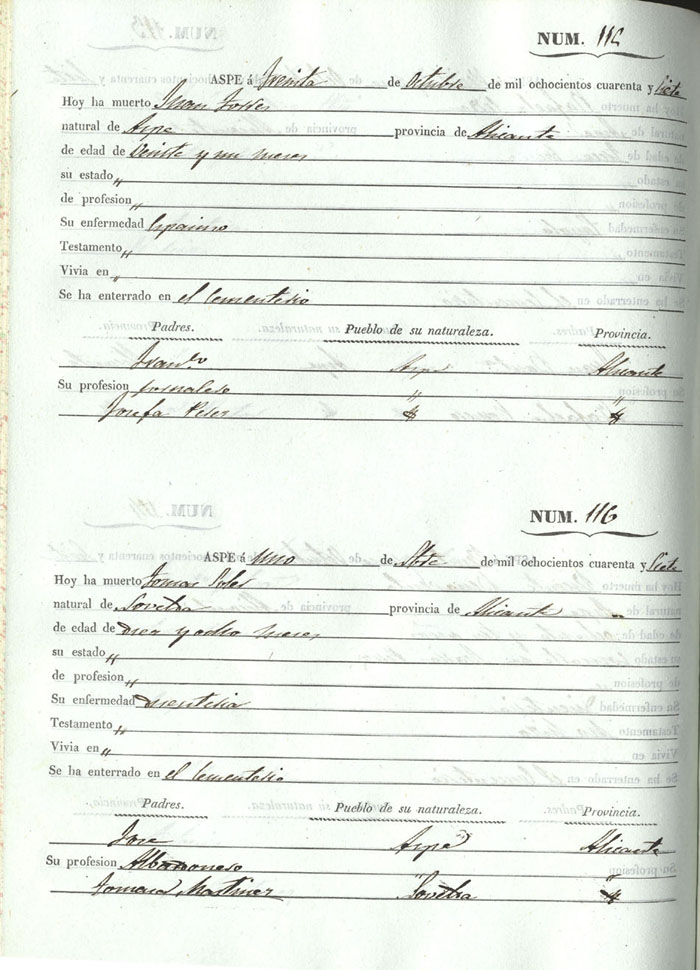 NUM. 115
ASPE á Treinta de Octubre de mil ochocientos cuarenta y siete
Hoy ha muerto Juan
natural de Aspe provincia de Alicante
de edad de Veinte y un meses
su estado „
de profesion „
Su enfermedad
Testamento „
Vivia en „
Se ha enterrado en el Cementerio
Padres. Pueblo de su naturaleza. Provincia.
Aspe Alicante
Su profesion jornalero „ „
Josefa
NUM. 116
ASPE á Uno de de mil ochocientos cuarenta y siete
Hoy ha muerto Tomas Soler
natural de Novelda provincia de Alicante
de edad de diez y ocho meses
su estado „
de profesion „
Su enfermedad
Testamento „
Vivia en „
Se ha enterrado en el Cementerio
Padres. Pueblo de su naturaleza. Provincia.
Jose Aspe Alicante
Su profesion „
Tomasa Martinez Novelda